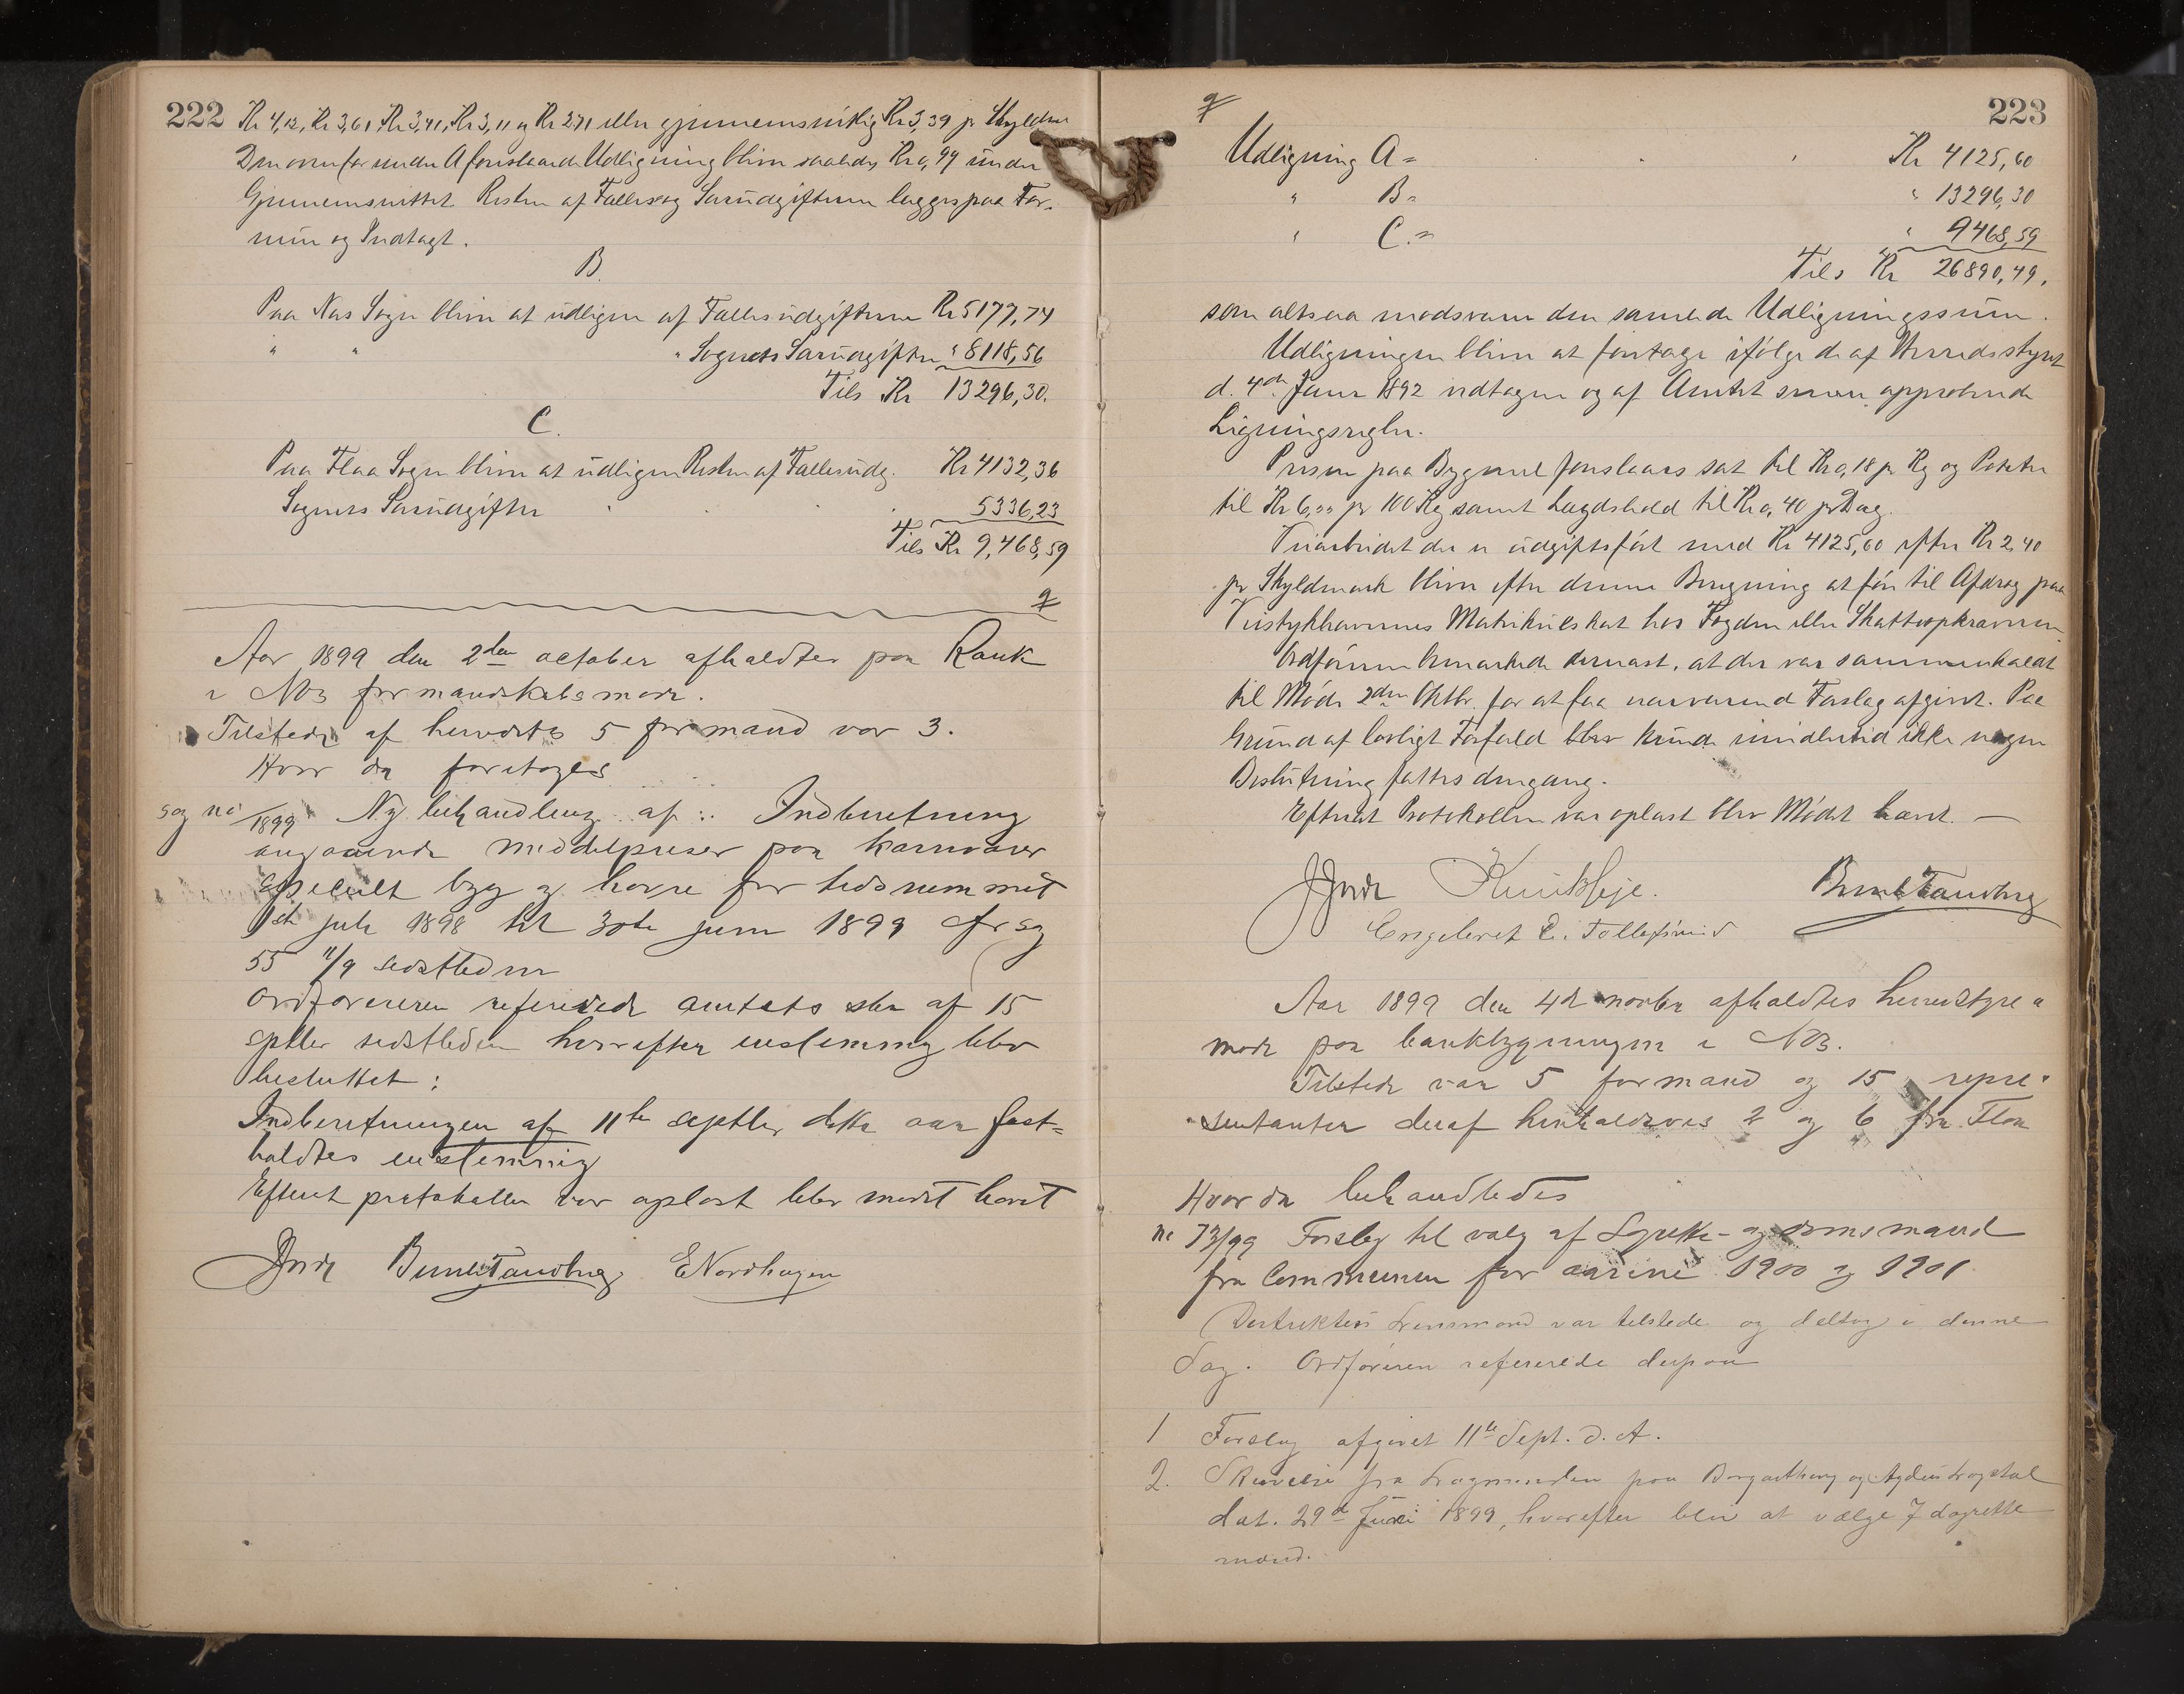 222
Kr 4,12, Kr 3,61, Kr 3,41, Kr 3,11 og Kr 2,71 eller gjennemsnitlig Kr 3,39 pr Skyldm
Den ovenfor under A foreslaaede Udligning bliver saaledes Kr 0,99 under
Gjennemsnittet. Resten af Fælles og Særudgifterne lægges paa For-
mue og Indtægt.
B
Paa Næs Sogn bliver at udligne af Fællesudgifterne Kr 5177,74
" " " Sognets Særudgifter " 8118,56
Tils Kr 13296,30.
C.
Paa Flaa Sogn bliver at udligne Resten af Fællesudg. Kr 4132,36
Sognets Særudgifter 5336,23
Tils Kr 9,468,59
Aar 1899 den 2den october afholdtes paa Rank
i Næs formandskabsmøde.
Tilstede af herredets 5 formænd var 3.
Hvor da foretoges
sag no /1899 Ny behandling af: Indberetning
angaaende middelpriser paa kornvarer
specielt byg og havre for tidsrummet
1ste juli 1898 til 30te juni 1899 cfr sag
55 11/9 sidstleden
Ordføreren refererede amtets skr af 15
septbr sidstleden hvorefter enstemmig blev
besluttet:
Indberetningen af 11te septbr dette aar fast-
holdtes enstemmig
Efterat protokollen var oplæst blev mødet hævet
Bernt Tandberg ENordhagen
223
Udligning A = Kr 4125,60
" B = " 13296,30
" C. = " 9468,59
Tils Kr 26890,49.
som altsaa modsvarer den samlede Udligningssum.
Udligningen bliver at foretage ifølge de af Herredsstyret
d. 4de Januar 1892 vedtagne og af Amtet senere approberede
Ligningsregler.
Prisen paa Bygmel foreslaaes sat til Kr 0,18 pr Kg og Poteter
til Kr 6,00 pr 100 Kg samt Lægdshold til Kr 0,40 pr Dag.
Veiarbeidet der er udgiftsført med Kr 4125,60 efter Kr 2,40
pr Skyldmark bliver efter denne Beregning at føre til Afdrag paa
Veistykkhavernes Matrikulskat hos Fogden eller Skatteopkræveren.
Ordføreren bemærkede dernæst, at der var sammenkaldt
til Møde 2den Oktbr. for at faa nærværende Forslag afgivet. Paa
Grund af lovligt Forfald blev kunde imidlertid ikke nogen
Beslutning fattes dengang.
Efterat Protokollen var oplæst blev Mødet hævet. —
Bernt Tandberg
Engebret E. Tollefsrud
Aar 1899 den 4de novbr afholdtes herredstyre
møde paa bankbygningen i Næs.
Tilstede var 5 formænd og 15 repre-
sentanter deraf henholdsvis 2 og 6 fra Flaa
Hvor da behandledes
no 73/99 Forslag til valg af Lagrette- og domsmænd
fra Communen for aarene 1900 og 1901
Distriktets Lensmand var tilstede og deltog i denne
Sag. Ordføreren refererede derpaa
1 Forslag afgivet 11te Sept. d. A.
2. Skrivelse fra Lagmanden paa Borgarthing og Agder Lagstol
dat. 29de Juni 1899, hvorefter blir at vælge 7 lagrette
mænd.